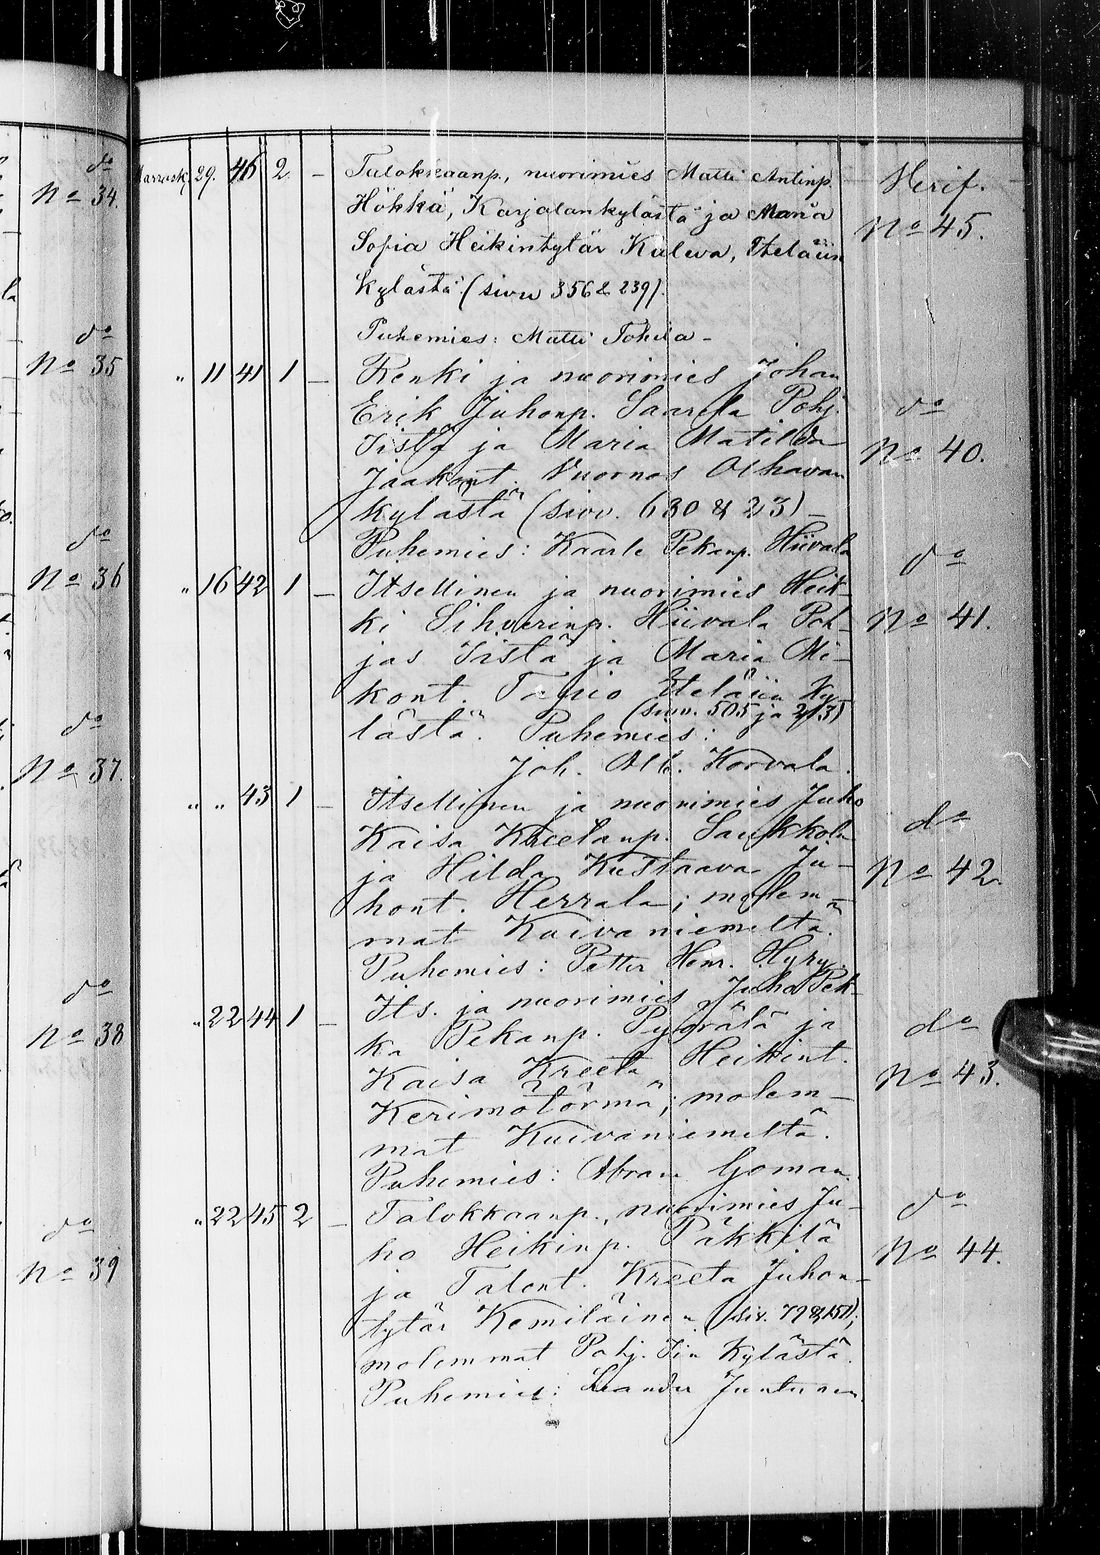 do
No 34.
do
No 35
do
No 36
do
No 37.
do
No 38
do
No 39
Marrask. 29. 46 2 – Talokkaanp., nuorimies Matti Antinp.
Hökkä, Karjalankylästä ja Maria
Sofia Heikintytär Kaleva, Eteläiin
kylästä (sivu 356 & 239).
Puhemies: Matti Tohila –
Herif.
No 45.
" 11 41 1 – Renki ja nuorimies Johan
Erik Juhonp. Saarela Pohj.
Iistä ja Maria Matilda
Jaakont. Vuornos Olhavan
kylästä (sivv. 630 & 23) –
Puhemies: Kaarle Pekanp. Hiivala
do
No 40.
" 16 42 1 – Itsellinen ja nuorimies Heik-
ki Sihverinp. Hiivala Poh-
jas Iistä ja Maria Mi-
kont. Tapio Eteläiin ky-
(sivv. 505 ja 213)
lästä. Puhemies:
Joh. Alb. Korvala.
do
No 41.
" " 43 1 – Itsellinen ja nuorimies Juho
Kaisa Kreetanp. Saukkola
ja Hilda Kustaava Ju-
hont. Herrala; molem-
mat Kuivaniemeltä.
Puhemies: Petter Henr. Hyry.
do
No 42.
" 22 44 1 – Its. ja nuorimies Juho Pek-
ka Pekanp. Pyörälä ja
Kaisa Kreeta Heikint.
Kerimötörmä; molem-
mat Kuivaniemeltä.
Puhemies: Abram Goman.
do
No 43.
" 22 45 2 – Talokkaanp., nuorimies Ju-
ho Heikinp. Päkkilä
ja Talont. Kreeta Juhon-
tytär Kemiläinen (siv. 79 & 151);
molemmat Pohj. Iin kylästä.
Puhemies: Leander Juntunen
do
No 44.